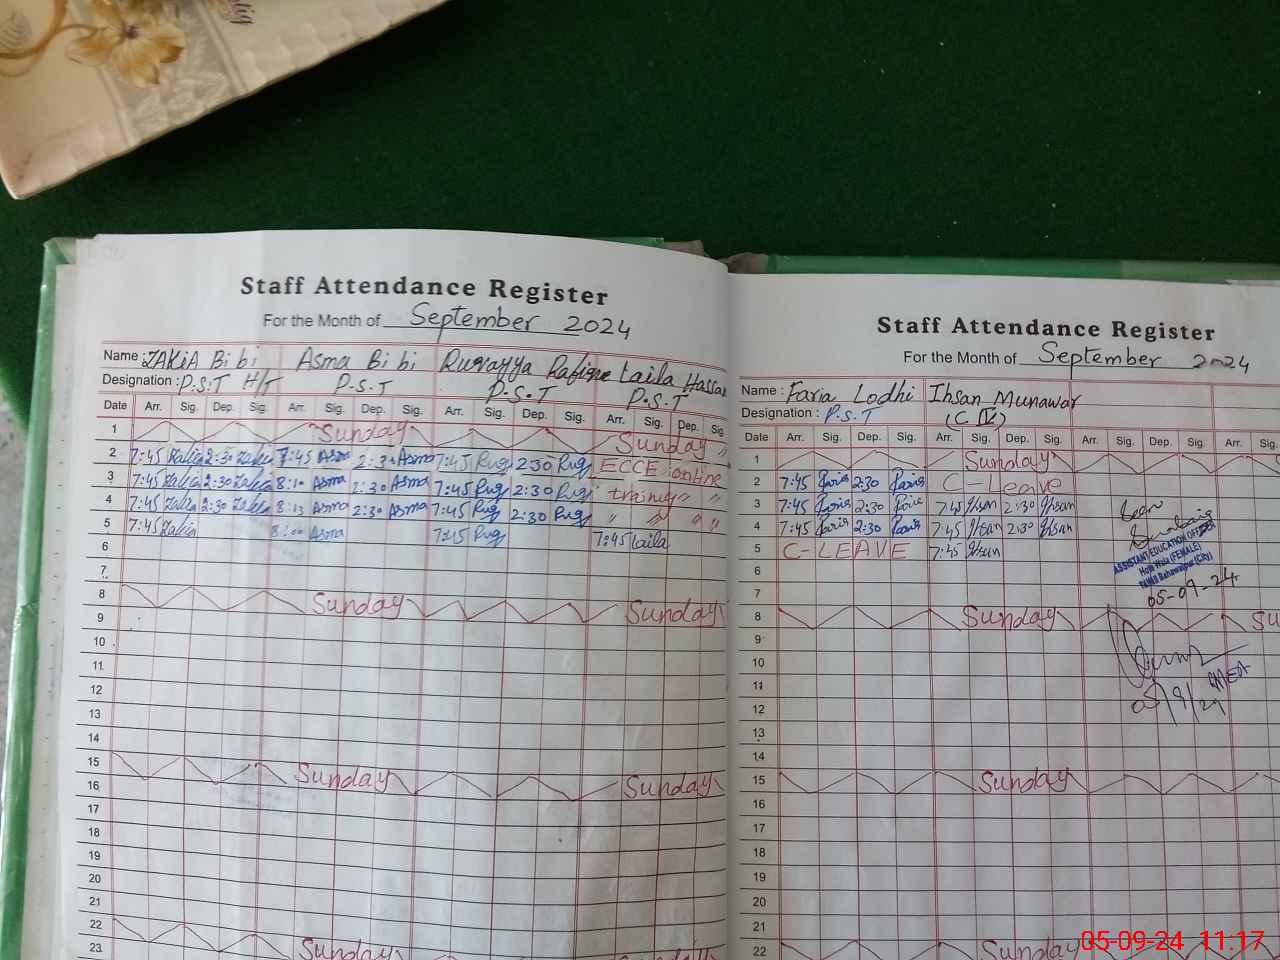 Staff Attendance Register
For the Month of September 2024
Name : ZAKIA Bibi Asma Bibi Ruqayya Rafique Laila Hassan
Designation : P.S.T H/T P.S.T P.S.T P.S.T
Date Arr. Sig. Dep. Sig. Arr. Sig. Dep. Sig. Arr. Sig. Dep. Sig. Arr. Sig. Dep. Sig.
1 Sunday Sunday "
2 7:45 Zakia 2:30 Zakia 7:45 Asma 2:30 Asma 7:45 Ruq 2:30 Ruq ECCE online
3 7:45 Zakia 2:30 Zakia 8:10 Asma 2:30 Asma 7:45 Ruq 2:30 Ruq training " "
4 7:45 Zakia 2:30 Zakia 8:13 Asma 2:30 Asma 7:45 Ruq 2:30 Ruq " " " "
5 7:45 Zakia 8:00 Asma 7:45 Ruq 7:45 Laila
6
7
8 Sunday Sunday
9
10
11
12
13
14
15 Sunday Sunday
16
17
18
19
20
21
22 Sunday
23
Staff Attendance Register
For the Month of September 2024
Name : Faria Lodhi Ihsan Munawar
Designation : P.S.T (C IV)
Date Arr. Sig. Dep. Sig. Arr. Sig. Dep. Sig. Arr. Sig. Dep. Sig. Arr. Sig.
1 Sunday
2 7:45 Faria 2:30 Faria C-Leave
3 7:45 Faria 2:30 Faria 7:45 Ihsan 2:30 Ihsan
4 7:45 Faria 2:30 Faria 7:45 Ihsan 2:30 Ihsan
5 C-LEAVE 7:45 Ihsan
Seen
ASSISTANT EDUCATION OFFICER
(FEMALE)
Bahawalpur (City)
05-09-24
6
7
8 Sunday Su
9
10
11
12
05/9/24
13
14
15 Sunday
16
17
18
19
20
21
22 Sunday
05-09-24 11:17